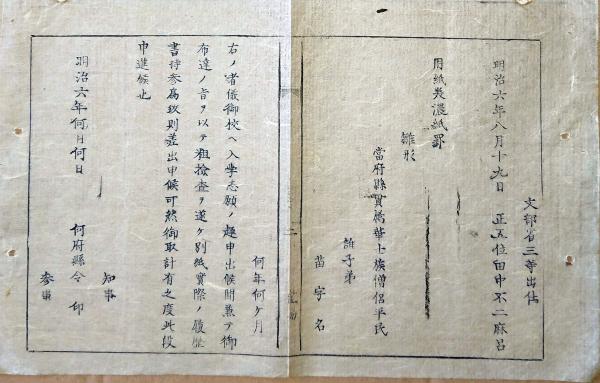 文部省三等出仕
明治六年八月十九日　正五位田中不二麻呂
用紙美濃紙罫
雛形
當府縣貫属華士族僧侶平民
誰子弟
苗字名
何年何ヶ月
右ノ者儀御校ヘ入学志願ノ趣申出候間兼テ御
布達ノ旨ヲ以テ粗検査ヲ遂ケ別紙實際ノ履歴
書持参為致則差出申候可然御取計有之度此段
申進候也
知事
明治六年何月何日　何府縣令　印
参事